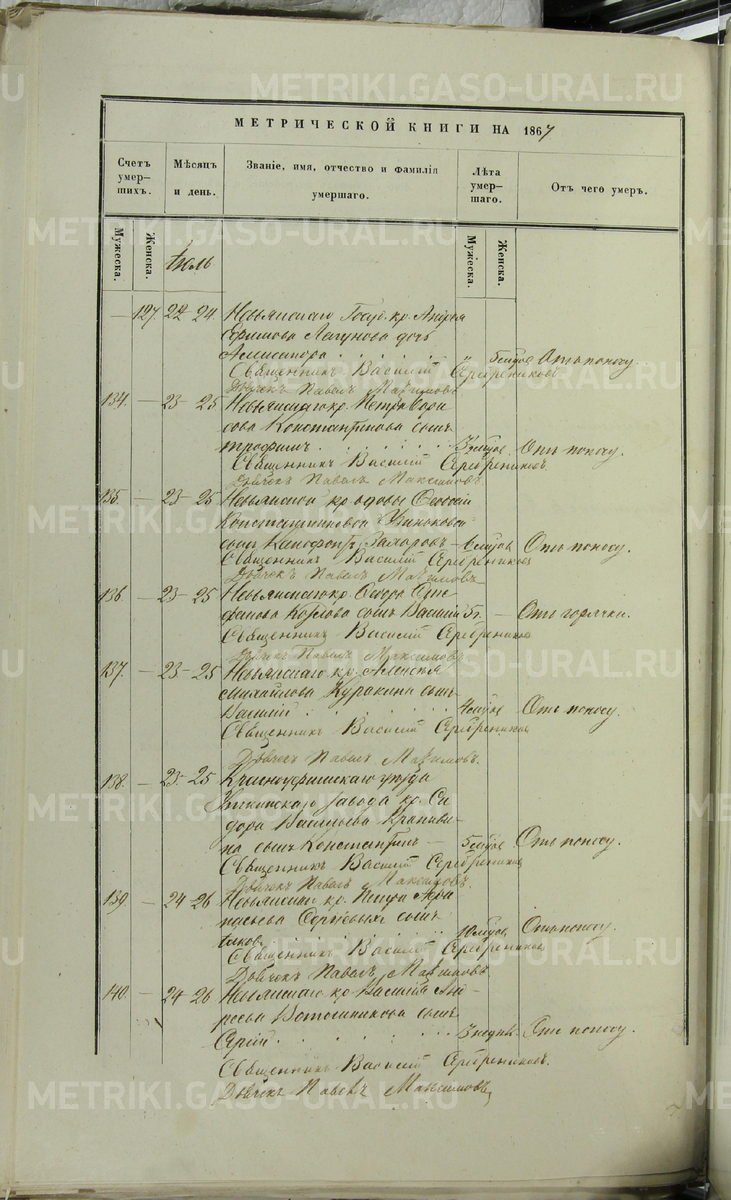 МЕТРИЧЕСКОЙ КНИГИ НА 1867
Счетъ умер-шихъ.
Мѣсяцъ и день.
Званіе, имя, отчество и фамилія умершаго.
Лѣта умер-шаго.
Отъ чего умеръ.
Мужеска.
Женска.
Мужеска.
Женска.
Іюль
— 127. 22 24 Невьянскаго Госуд. кр. Андрея
Ефимова Лагунова дочь
Александра
Отъ поносу.
Священникъ Василій Серебрениковъ
Дьячекъ Павелъ Максимовъ
134. — 23 25 Невьянскаго кр. Петра Бори
сова Константинова сынъ
Трофимъ
Отъ поносу.
Священникъ Василій Серебрениковъ.
Дьячекъ Павелъ Максимовъ.
135. — 23 25 Невьянской кр. вдовы
Константиновой
сынъ Захаровъ
Отъ поносу.
Священникъ Василій Серебрениковъ
Дьячекъ Павелъ Максимовъ
136. — 23 25 Невьянскаго кр.
Козлова сынъ Василій 5 г. — Отъ горячки.
Священникъ Василій Серебрениковъ
Дьячекъ Павелъ Максимовъ
137. — 23 25 Невьянскаго кр. Алексѣя
Михайлова Куракина сынъ
Василій
Отъ поносу.
Священникъ Василій Серебрениковъ
Дьячекъ Павелъ Максимовъ.
138. — 23 25 Красноуфимскаго уѣзда
Уткинскаго завода кр. Си
дора Васильева Крапиви
на сынъ Константинъ —
Отъ поносу.
Священникъ Василій Серебрениковъ
Дьячекъ Павелъ Максимовъ.
139 — 24 26 Невьянскаго кр.
сынъ
Іаковъ
Отъ поносу.
Священникъ Василій Серебрениковъ
Дьячекъ Павелъ Максимовъ.
140. — 24 26 Невьянскаго кр. Василія
Ветошникова сынъ
Сергій
3 недѣль. Отъ поносу.
Священникъ Василій Серебрениковъ.
Дьячекъ Павелъ Максимовъ
METRIKI.GASO-URAL.RU